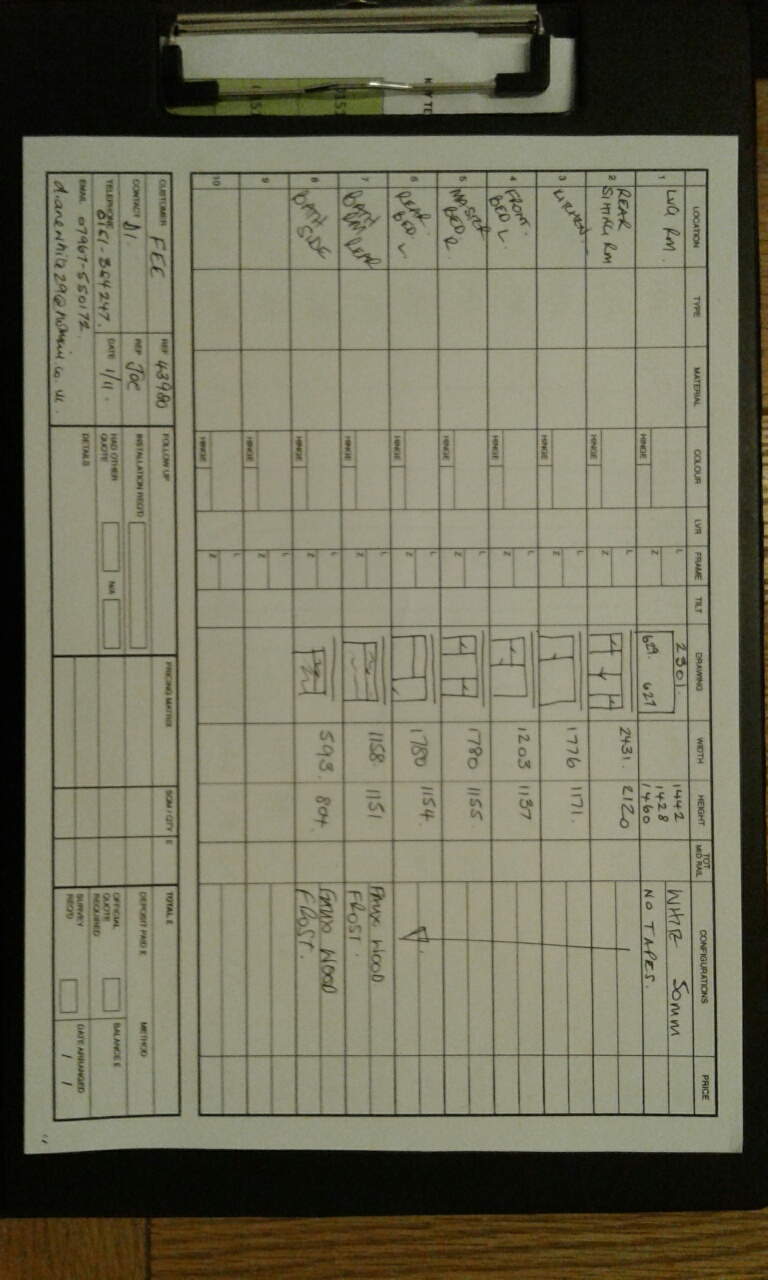 LOCATION TYPE MATERIAL COLOUR LVR FRAME TILT DRAWING WIDTH HEIGHT TOT MID RAIL CONFIGURATIONS PRICE
1 LVG RM. HINGE L Z 2301. 629. 627 1442 1428 1460 WHITE 50mm NO TAPES.
2 REAR SITTING RM HINGE L Z 2431. 2120
3 KITCHEN. HINGE L Z 1776 1171.
4 FRONT. BED L. HINGE L Z 1203 1137
5 MASTER BED R. HINGE L Z 1780 1155
6 REAR BED. L HINGE L Z 1780 1154.
7 BATH RM REAR HINGE L Z 1158. 1151 FAUX WOOD FROST.
8 BATH SIDE HINGE L Z 593. 804. FAUX WOOD FROST.
9 HINGE L Z
10 HINGE L Z
CUSTOMER FEE REF 43980
CONTACT DI. REP JOE
TELEPHONE DATE 1/11.
EMAIL 07967-550172.
FOLLOW UP
INSTALLATION REQ'D
HAD OTHER QUOTE N/A
DETAILS
PRICING MATRIX SQM / QTY £
TOTAL £
DEPOSIT PAID £ METHOD
OFFICIAL QUOTE REQUIRED BALANCE £
SURVEY REQ'D DATE ARRANGED / /